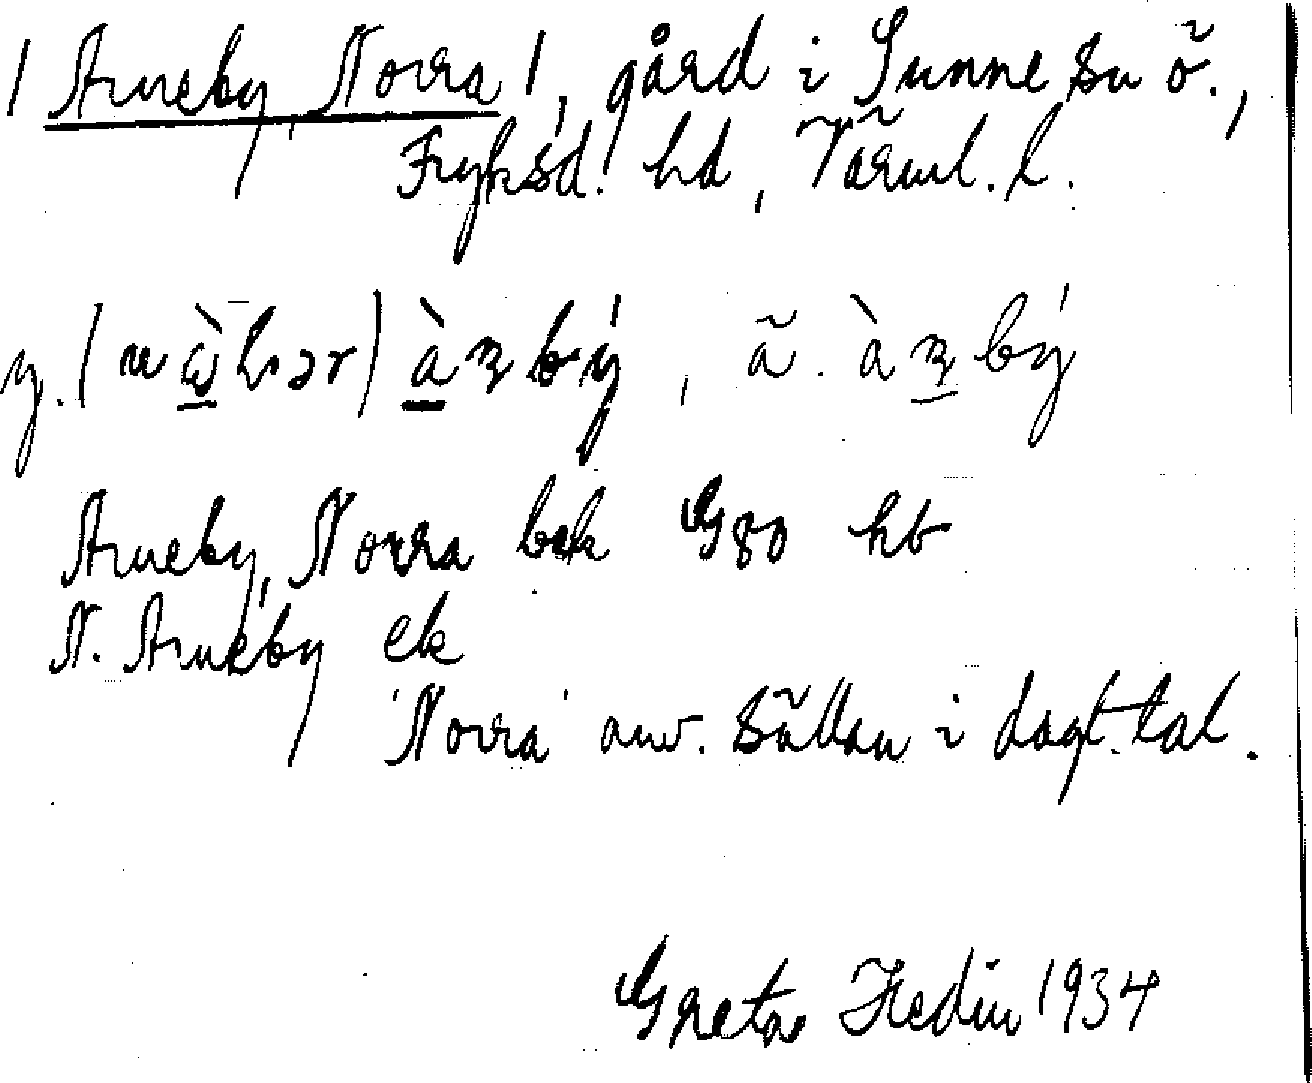 / Arneby, Norra /, gård i Sunne sn ö.,
Fryksd. hd, Värml. l.
y. ( ) àɳbý, ä. àɳbý
Arneby, Norra bek G80 hb
N. Arneby ek
'Norra' anv. sällan i dagl. tal.
Greta Hedin 1934